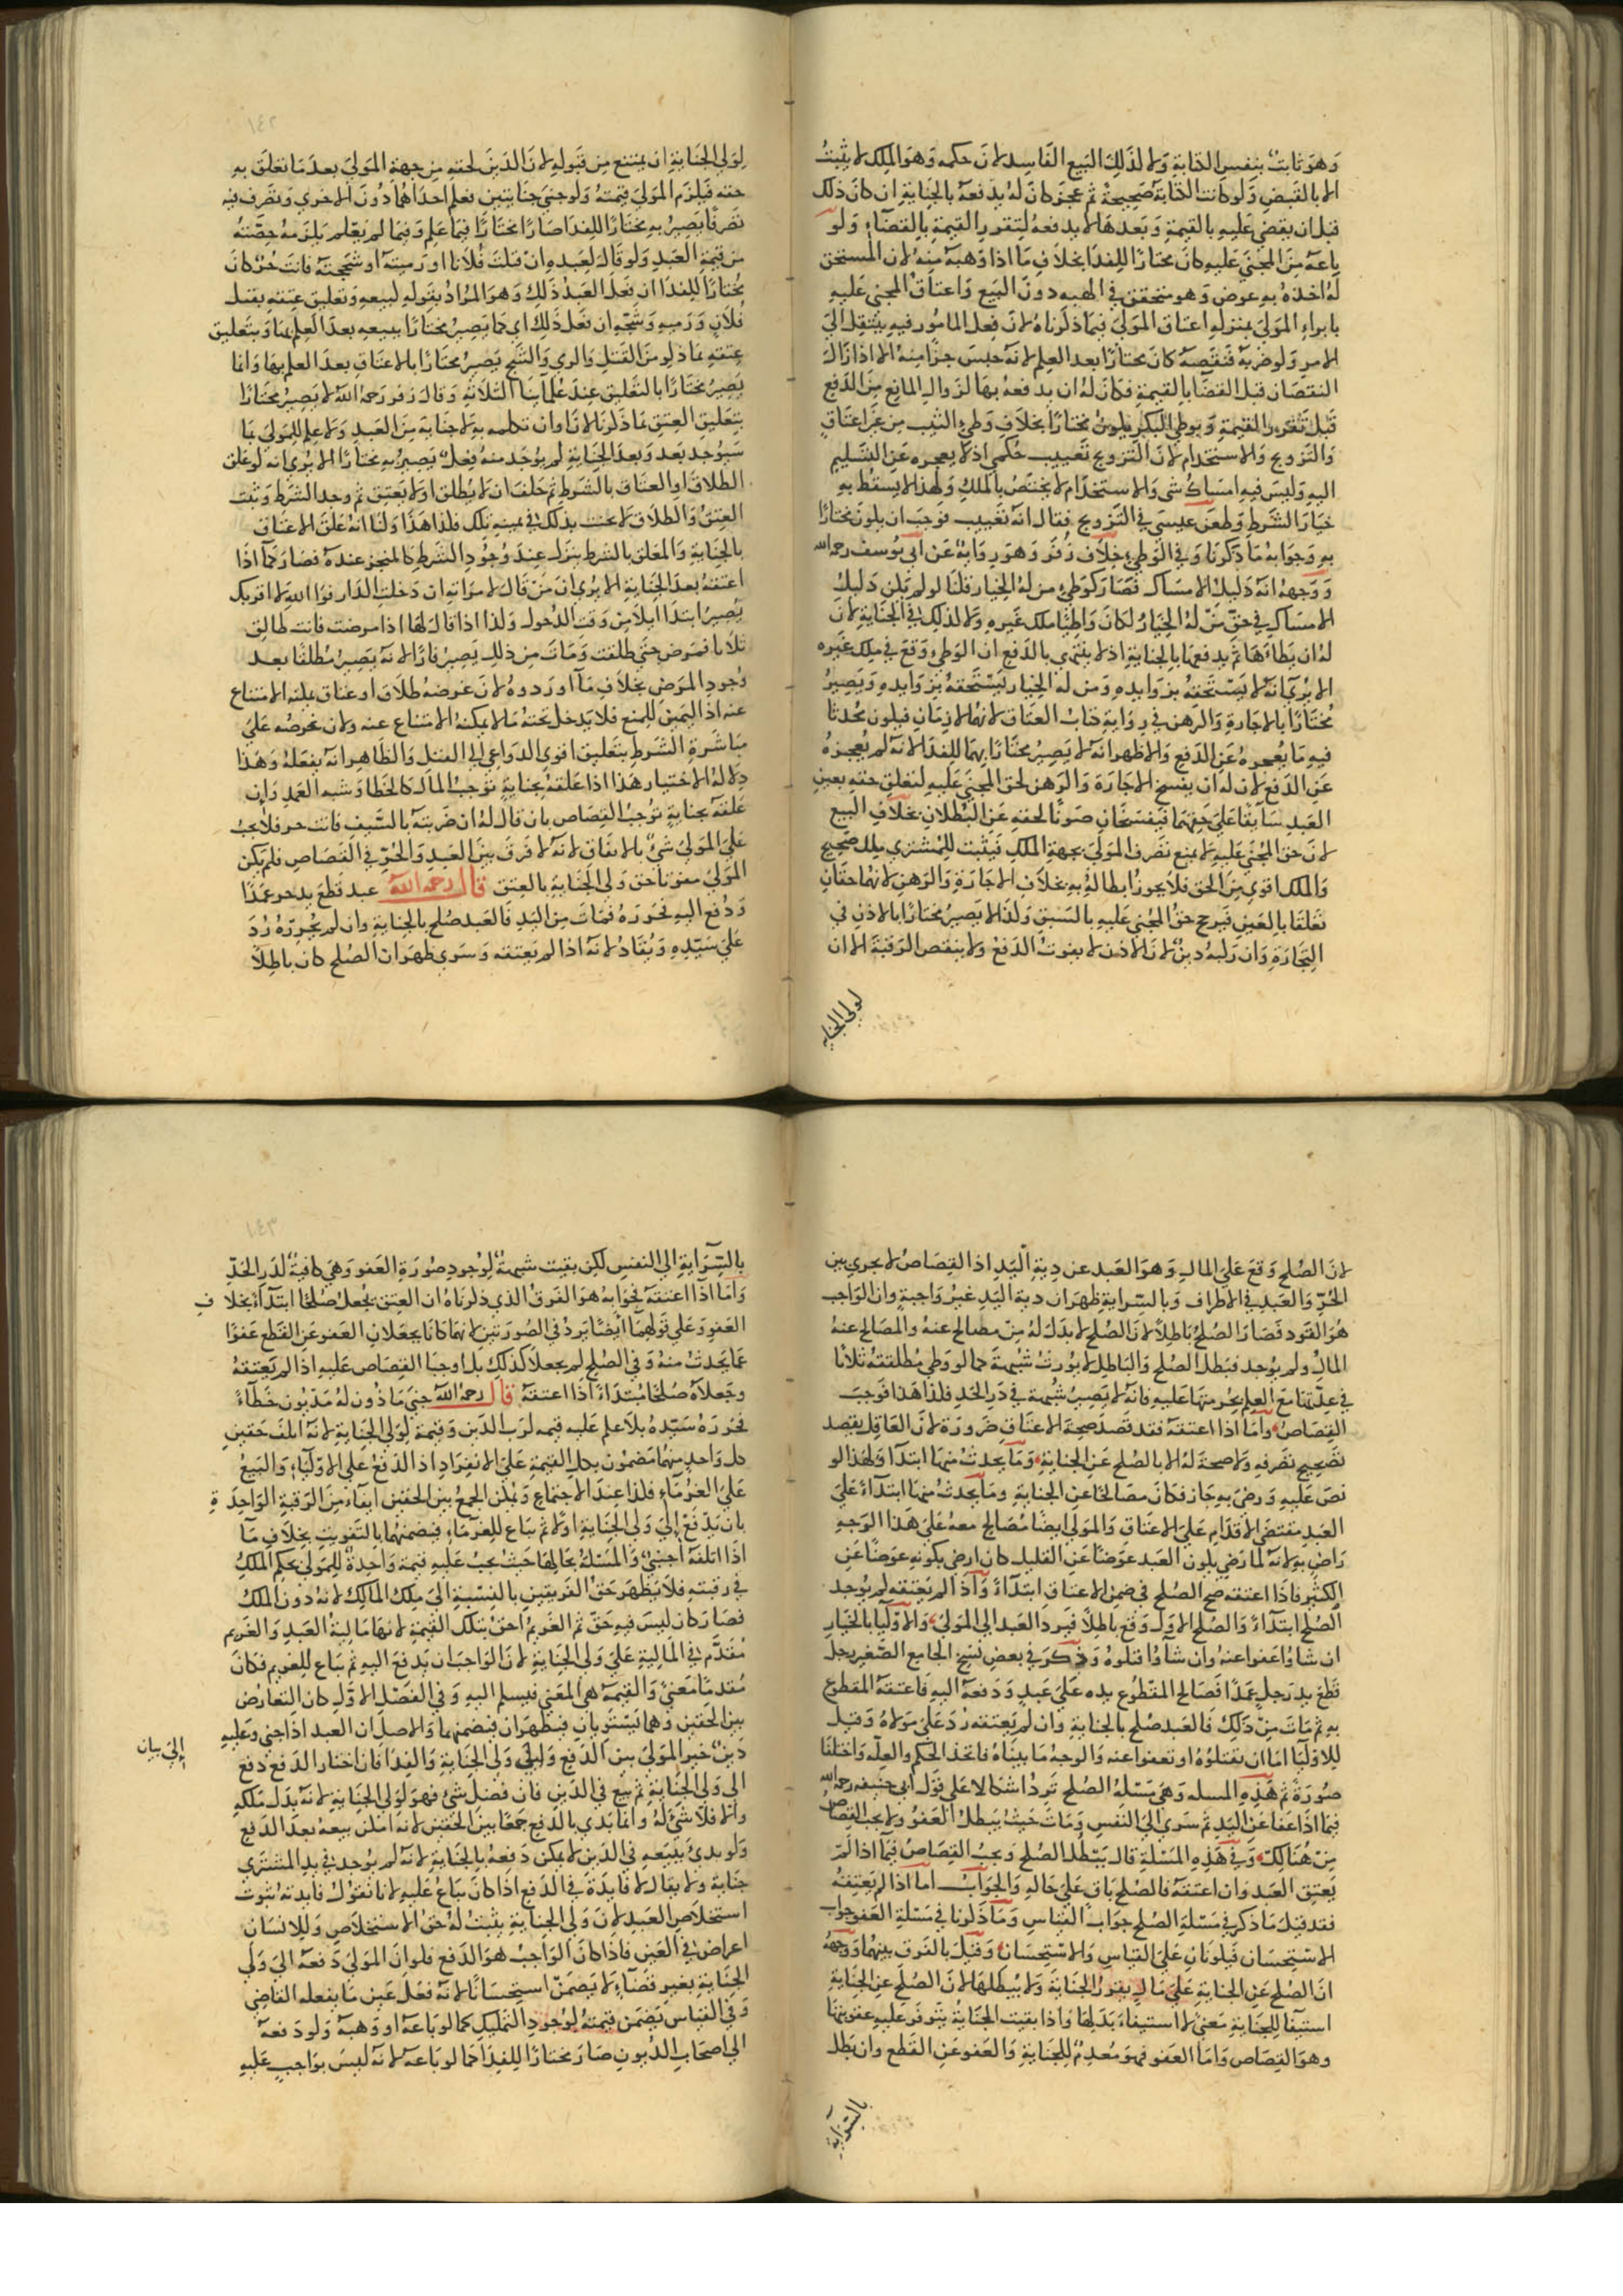 وهو ثابت بنفس الكتابة ولا كذلك البيع الفاسد لان حكمه وهو الملك لا يثبت
الا بالقبض ولو كانت الكتابة صحيحة ثم عجز كان له يدفعه بالجناية ان كان ذلك
قبل ان يقضي عليه بالقيمة وبعدها لا يدفعه لتقرر القيمة بالقضاء ولو
باعه من المجني عليه كان مختارا للفدا بخلاف ما اذا وهبه منه لان المستحق
له اخذه بغير عوض وهو متحقق في الهبه دون البيع واعتاق المجني عليه
بامر المولى بمنزلة اعتاق المولى فيما ذكرناه لان فعل المامور فيه ينتقل الى
الامر ولو ضربه فنقصه كان مختارا بعد العلم لانه حبس جزا منه الا اذا زال
النقصان قبل القضا بالقيمة فكان له ان يدفعه بها لزوال المانع من الدفع
قبل تقرر القيمة وبوطي البكر يكون مختارا بخلاف وطي الثيب من غير اعتاق
والتزويج والاستخدام لان التزويج تعييب حكمي اذ لا يعجزه عن التسليم
اليه وليس فيه امساك شي والاستخدام لا يختص بالملك ولهذا لا يسقط به
خيار الشرط وطعن عيسى في التزويج فقال انه تعييب فوجب ان يكون مختارا
به وجوابه ما ذكرنا وفي الوطي خلاف زفر وهو رواية عن ابي يوسف رحمه الله
ووجهه انه دليل الامساك فصار كوطي من له الخيار قلنا لو لم يكن دليل
الامساك في حق من له الخيار لكان واطئا ملك غيره ولا كذلك في الجناية لان
له ان يطاها ثم يدفعها بالجناية اذ لا يتبين بالدفع ان الوطي وقع في ملك غيره
الا يرى انه لا يستحقه بزوايده ومن له الخيار يستحقه بزوايده ويصير
مختارا بالاجارة والرهن في رواية كتاب العتاق لانهما لازمان فيكون محدثا
فيه ما يعجزه عن الدفع والاظهر انه لا يصير مختارا بهما للفدا لانه لم يعجزه
عن الدفع لان له ان يفسخ الاجارة والرهن لحق المجني عليه لتعلق حقه بعين
العبد سابقا على حقهما فيفسخان صونا لحقه عن البطلان بخلاف البيع
لان حق المجني عليه لا يمنع تصرف المولى بجهة الملك فيثبت للمشتري ملك صحيح
والملك اقوى من الحق فلا يجوز ابطاله به بخلاف الاجارة والرهن لانهما حقان
تعلقا بالعين فيرجح حق المجني عليه بالسبق ولذا لا يصير مختارا بالاذن في
التجارة وان ركبه دين لان الاذن لا يفوت الدفع ولا ينقص الرقبة الا ان
لولي الجناية
١٤٢
لولي الجناية ان يمتنع من قبوله لان الدين لحقه من جهة المولى بعد ما تعلق به
حقه فيلزم المولى قيمته ولو جنى جنايتين فعلم احداهما دون الاخرى وتصرف فيه
تصرفا يصير به مختارا للفدا صار مختارا فيما علم وفيما لم يعلم يلزمه حصته
من قيمة العبد ولو قال لعبده ان قتلت فلانا او رميته او شججته فانت حر كان
مختارا للفدا ان فعل العبد ذلك وهو المراد بقوله لبيعه وتعليق عتقه بقتل
فلان ورميه وشجه ان فعل ذلك اي كما يصير مختارا ببيعه بعد العلم بها وبتعليق
عتقه بما ذكر من القتل والرمي والشج يصير مختارا بالاعتاق بعد العلم بها وانما
يصير مختارا بالتعليق عند علمآينا الثلاثة وقال زفر رحمه الله لا يصير مختارا
بتعليق العتق بما ذكرنا لان اوان تكلمه به لا جناية من العبد ولا علم للمولى بما
سيوجد بعد وبعد الجناية لم يوجد منه فعل يصير به مختارا الا يرى انه لو علق
الطلاق او العتاق بالشرط ثم حلف ان لا يطلق او لا يعتق ثم وجد الشرط وثبت
العتق والطلاق لا يحنث بذلك في يمينه تلك فلذا هذا ولنا انه علق الاعتاق
بالجناية والمعلق بالشرط ينزل عند وجود الشرط كالمنجز عنده فصار كما اذا
اعتقه بعد الجناية الا يرى ان من قال لامراته ان دخلت الدار فوالله لا اقربك
يصير ابتدا ايلا من وقت الدخول ولذا اذا قال لها اذا مرضت فانت طالق
ثلاثا فمرض حتى طلقت ومات من ذلك يصير فارا لانه يصير مطلقا بعد
وجود المرض بخلاف ما اوردوه لان غرضه طلاق او عتاق يمكنه الامتناع
عنه اذ اليمين للمنع فلا يدخل تحته ما لا يمكنه الامتناع عنه ولان تحرضه على
مباشرة الشرط بتعليق اقوى الدواعي الى القتل والظاهر انه يفعله وهذا
دلالة الاختيار هذا اذا علقه بجناية توجب المال كالخطا وشبه العمد وان
علقه بجناية توجب القصاص بان قال له ان ضربته بالسيف فانت حر فلا يجب
على المولى شي بالاتفاق لانه لا فرق بين العبد والحر في القصاص فلم يكن
المولى مفوتا حق ولي الجناية بالعتق قال رحمه الله عبد قطع يد حر عمدا
ودفع اليه فحرره فمات من اليد فالعبد صلح بالجناية وان لم يحرره رد
على سيده ويقاد لانه اذا لم يعتقه وسرى ظهر ان الصلح كان باطلا
لان الصلح وقع على المال وهو العبد عن دية اليد اذ القصاص لا يجري بين
الحر والعبد في الاطراف وبالسراية ظهر ان دية اليد غير واجبة وان الواجب
هو القود فصار الصلح باطلا لان الصلح لا بد له من مصالح عنه والمصالح عنه
المال ولم يوجد فبطل الصلح والباطل لا يورث شبهة كما لو وطي مطلقته ثلاثا
في عدتها مع العلم بحرمتها عليه فانه لا يصير شبهة في درء الحد فلذا هذا فوجب
القصاص واما اذا اعتقه فقد قصد صحة الاعتاق ضرورة لان العاقل يقصد
تصحيح تصرفه ولا صحة له الا بالصلح عن الجناية وما يحدث منها ابتدا ولهذا لو
نص عليه ورضي به جاز فكان مصالحا عن الجناية وما يحدث منها ابتداء على
العبد مقتضى الاقدام على الاعتاق والمولى ايضا مصالح معه على هذا الوجه
راض به لانه لما رضي بكون العبد عوضا عن القليل كان ارضى بكونه عوضا عن
الكثير فاذا اعتقه صح الصلح في ضمن الاعتاق ابتداء واذا لم يعتقه لم يوجد
الصلح ابتداء والصلح الاول وقع باطلا فيرد العبد الى المولى والاوليا بالخيار
ان شاوا عفوا عنه وان شاوا قتلوه وذكر في بعض نسخ الجامع الصغير رجل
قطع يد رجل عمدا فصالح المقطوع يده على عبد ودفعه اليه فاعتقه المقطوع
به ثم مات من ذلك فالعبد صلح بالجناية وان لم يعتقه رد على مولاه وقيل
للاوليا اما ان يقتلوه او تعفوا عنه والوجه ما بيناه فاتحد الحكم والعلة واختلفا
صورة ثم هذه المسله وهي مسئلة الصلح ترد اشكالا على قول ابي حنيفه رحمه الله
فيما اذا عفا عن اليد ثم سرى الى النفس ومات حيث يبطل العفو ولا يجب القصاص
من هنالك وفي هذه المسئلة قال يبطل الصلح ويجب القصاص فيما اذا لم
يعتق العبد وان اعتقه فالصلح باق على حاله والجواب اما اذا لم يعتقه
فقد قيل ما ذكر في مسئلة الصلح جواب القياس وما ذكرنا في مسئلة العفو جواب
الاستحسان فيكونان على القياس والاستحسان وقيل بالفرق بينهما ووجهه
ان الصلح عن الجناية على مال يقرر الجناية ولا يبطلها لان الصلح عن الجناية
استيفا للجناية معنى لاستيفاء بدلها واذا بقيت الجناية يتوفر عليه عقوبتها
وهو القصاص واما العفو فهو معدم للجناية والعفو عن القطع وان بطل
بالسراية
١٤٣
بالسراية الى النفس لكن بقيت شبهة لوجود صورة العفو وهي كافية لدرء الحد
واما اذا اعتقه فجوابه هو الفرق الذي ذكرناه ان العتق يجعل صلحا ابتداء بخلاف
العفو وعلى قولهما ايضا يرد في الصورتين لانهما كانا يجعلان العفو عن القطع عفوا
عما يحدث منه وفي الصلح لم يجعلا كذلك بل اوجبا القصاص عليه اذا لم يعتقه
وجعلاه صلحا مبتداء اذا اعتقه قال رحمه الله جنى ماذون له مديون خطاء
فحرره سيده بلا علم عليه قيمه لرب الدين وقيمة لولي الجناية لانه اتلف حقين
كل واحد منهما مضمون بكل القيمة على الانفراد اذ الدفع على الاولياء والبيع
على الغرماء فلذا عند الاجتماع ويمكن الجمع بين الحقين ايفاء من الرقبة الواحدة
بان يدفع الى ولي الجناية اولا ثم يباع للغرماء فيضمنهما بالتفويت بخلاف ما
اذا اتلفه اجنبي والمسئلة بحالها حيث يجب عليه قيمة واحدة للمولى بحكم الملك
في رقبته فلا يظهر حق الفريقين بالنسبة الى ملك المالك لانه دون الملك
فصار كان ليس فيه حق ثم الغريم احق بتلك القيمة لانها مالية العبد والغريم
مقدم في المالية على ولي الجناية لان الواجب ان يدفع اليه ثم يباع للغريم فكان
مقدما معنى والقيمة هي المعنى فيسلم اليه وفي الفصل الاول كان التعارض
بين الحقين وهما يستويان فيظهران فيضمنهما والاصل ان العبد اذا جنى وعليه
دين خير المولى بين الدفع الى ولي الجناية والفدا فان اختار الدفع دفع
الى بيان
الى ولي الجناية ثم بيع في الدين فان فضل شي فهو لولي الجناية لانه بدل ملكه
والا فلا شي له وانما بدي بالدفع جمعا بين الحقين لانه امكن بيعه بعد الدفع
ولو بدئ ببيعه في الدين لا يمكن دفعه بالجناية لانه لم يوجد في يد المشتري
جناية ولا يقال لا فايدة في الدفع اذا كان يباع عليه لانا نقول فايدته ثبوت
استخلاص العبد لان ولي الجناية يثبت له حق الاستخلاص وللانسان
اعراض في العين فاذا كان الواجب هو الدفع فلو ان المولى دفعه الى ولي
الجناية بغير قضاء لا يضمن استحسانا لانه فعل عين ما يفعله القاضي
وفي القياس يضمن قيمته لوجود التمليك كما لو باعه او وهبه ولو دفعه
الى اصحاب الديون صار مختارا للفدا كما لو باعه لانه ليس بواجب عليه